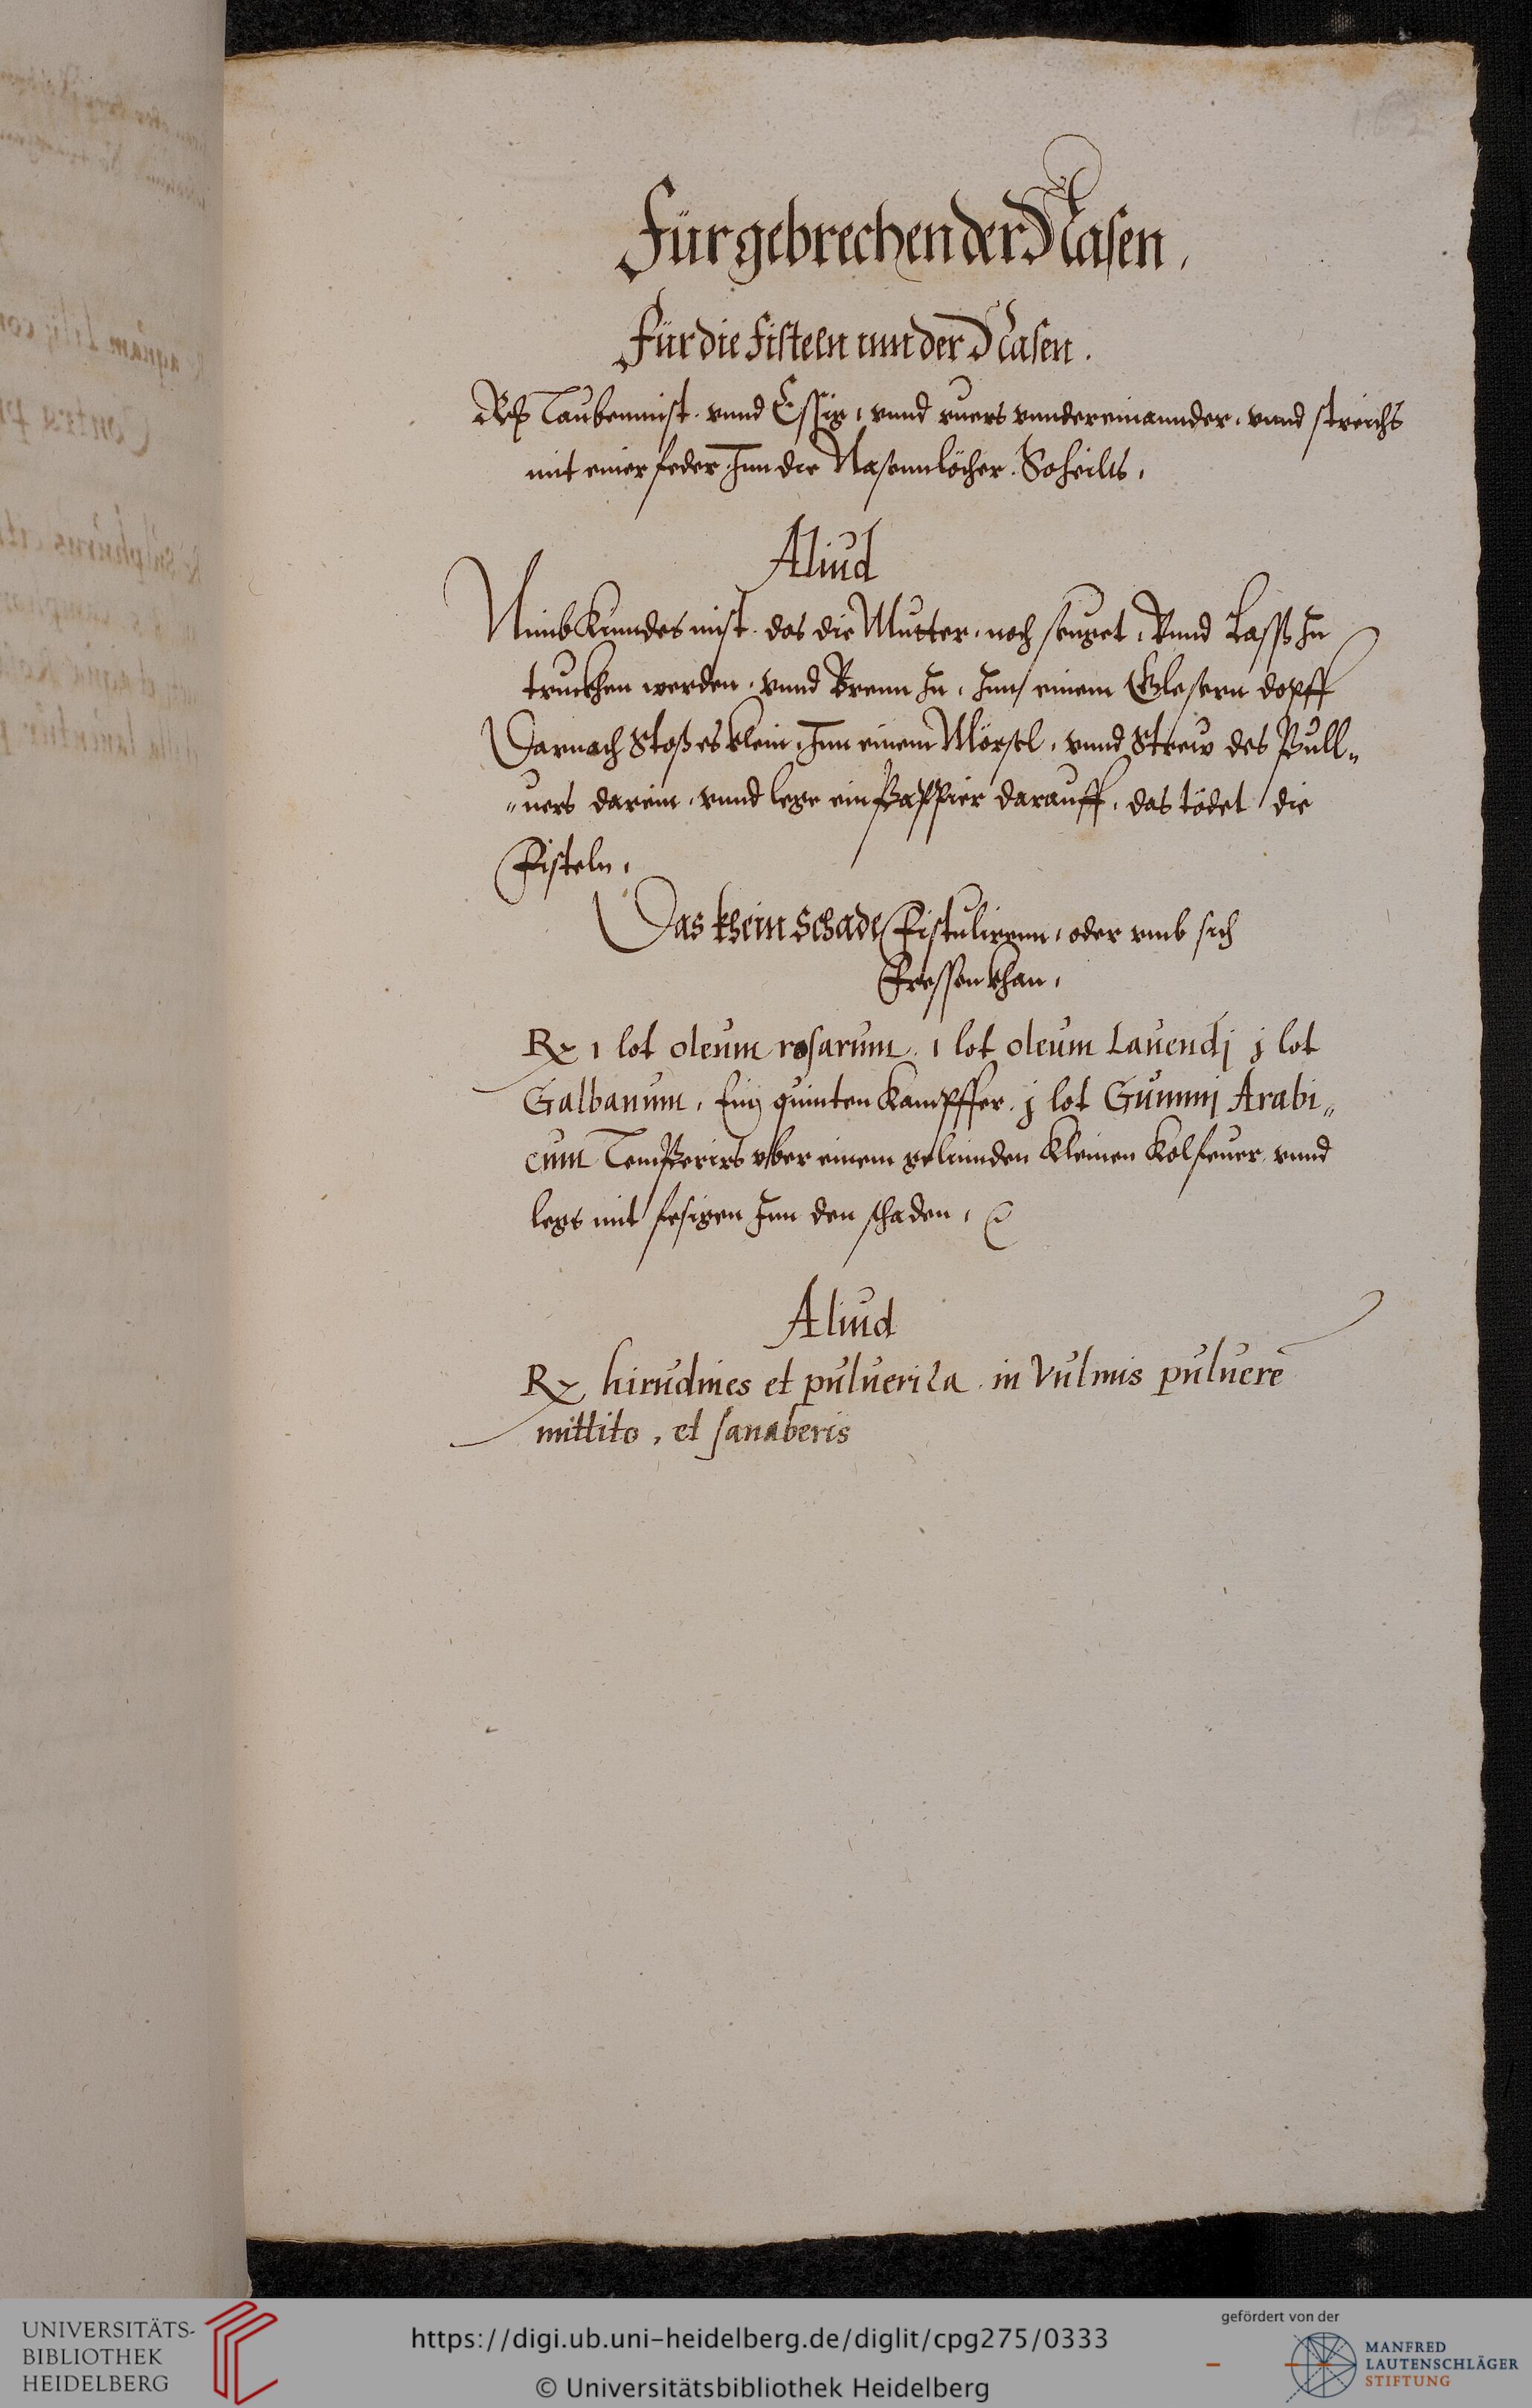 162
Für gebrechen der Nasen.
Für die Fisteln inn der Nasen.
Rp Taubenmist. vnnd Essig, vnnd ruers vnndereinannder, vnnd streichs
mit einer feder Inn die Nasennlöcher. So heilts.
Aliud
Nimb Kinndes mist. das die Mutter, noch seuget, Vnnd Lasss In
truckhen werden, vnnd Brenn In, Inn einem Glesern dopff
Darnach Stoß es klein, Inn einem Mörsel, vnnd Strew des Pull„
„uers darein, vnnd lege ein Pappier darauff, das tödet die
Fisteln.
Das khein Schade Fistulirenn, oder vmb sich
Fressen khan.
Rx 1 lot oleum rosarum. 1 lot oleum Lauendj j lot
Galbanum, Ein quinten Kampffer. j lot Gummj Arabi„
cum Temperirs vber einem gelinnden Kleinen Kolfeuer, vnnd
legs mit fesigen Inn den schaden.
Aliud
Rx hirudines et pulueriza. in Vulnus puluere
mittito, et sanaberis
UNIVERSITÄTS-
BIBLIOTHEK
HEIDELBERG
https://digi.ub.uni-heidelberg.de/diglit/cpg275/0333
© Universitätsbibliothek Heidelberg
gefördert von der
MANFRED
LAUTENSCHLÄGER
STIFTUNG